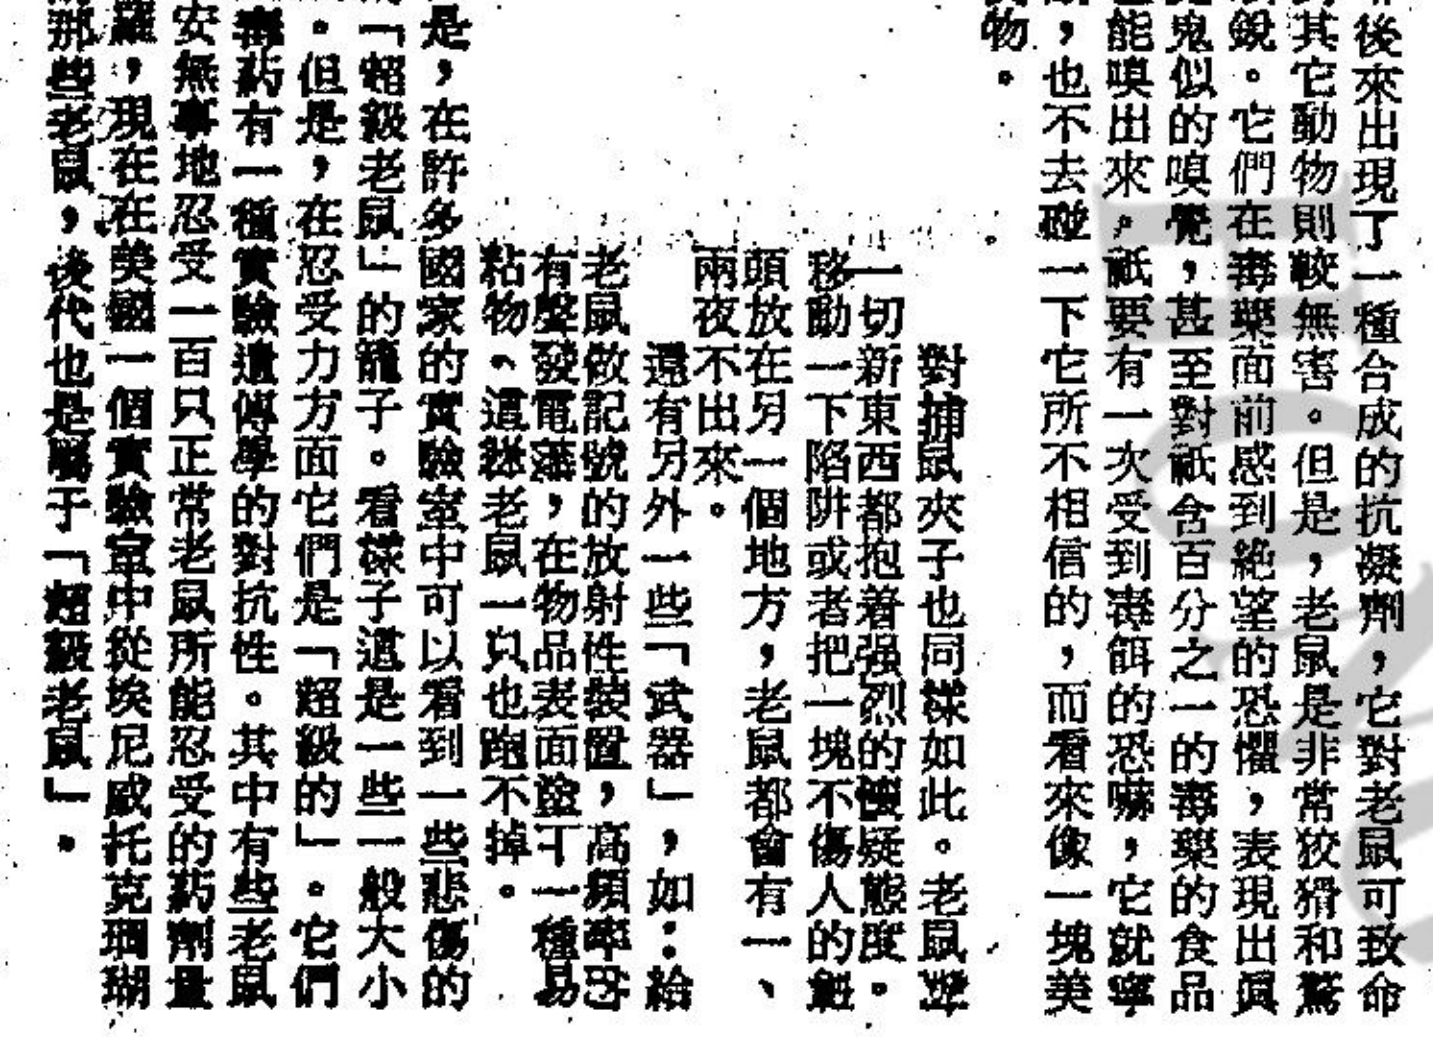 後來出現了一種合成的抗凝劑，它對老鼠可致命
其它動物則較無害。但是，老鼠是非常狡猾和驚
銳。它們在毒藥面前感到絕望的恐懼，表現出眞
鬼似的嗅覺，甚至對祇含百分之一的毒藥的食品
能嗅出來。祇要有一次受到毒餌的恐嚇，它就寧
，也不去碰一下它所不相信的，而看來像一塊美
物。
對捕鼠夾子也同樣如此。老鼠對
一切新東西都抱着强烈的懷疑態度。
移動一下陷阱或者把一塊不傷人的
頭放在另一個地方，老鼠都會有一、
兩夜不出來。
還有另外一些「武器」，如：給
老鼠做記號的放射性裝置，高頻率
有聲發電，在物品表面塗了一種易
粘物。這樣老鼠一只也跑不掉。
是，在許多國家的實驗室中可以看到一些悲傷的
「超級老鼠」的籠子。看樣子這是一些一般大小
。但是，在忍受力方面它們是「超級的」。它們
毒葯有一種實驗遺傳學的對抗性。其中有些老鼠
安無事地忍受一百只正常老鼠所能忍受的葯劑量
羅，現在在美國一個實驗室中從埃尼威托克珊瑚
那些老鼠，後代也是屬于「超級老鼠」。